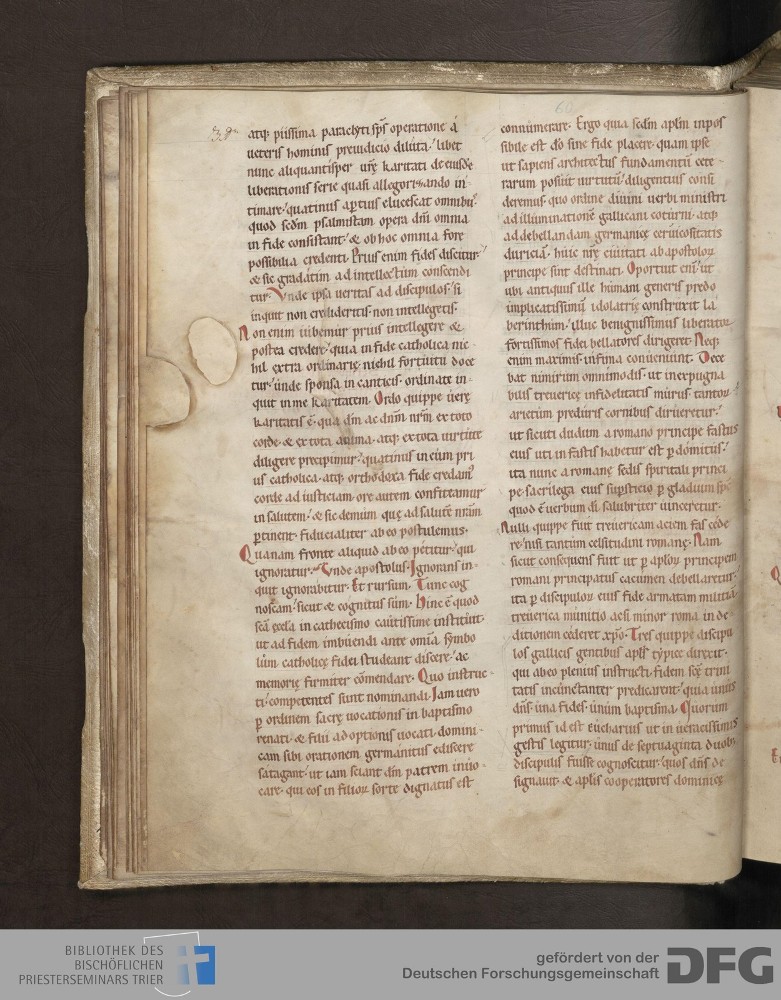 60
atq; piissima paraclyti sp̄s operatione a
ueteris hominis preiudicio diluta. libet
nunc aliquantisper urę karitati de eiusdē
liberationis serie quasi allegorizando in
timare. quatinus aptius elucescat omnibus
quod scdm psalmistam opera dn̄i omnia
in fide consistant. & ob hoc omnia fore
possibilia credenti. Prius enim fides discitur
& sic gradatim ad intellectum conscendi
tur. Vnde ipsa ueritas ad discipulos. si
inquit non credideritis. non intellegetis.
Non enim iubemur prius intellegere &
postea credere. quia in fide catholica nic
hil extra ordinarię. nichil fortuitu doce
tur. unde sponsa in canticis. ordinate in
quit in me karitatem. Ordo quippe uerę
karitatis ē. qua dm̄ ac dnm̄ nrm̄ ex toto
corde. & ex tota anima. atq; ex tota uirtute
diligere precipimur. quatinus in eum pri
us catholica. atq; orthodoxa fide credam'
corde ad iusticiam. ore autem confiteamur
in salutem. & sic demum quę ad salutē nram̄
ꝑtinent. fiducialiter ab eo postulemus.
Quanam fronte aliquid ab eo petitur. qui
ignoratur. Vnde apostolus. Ignorans in
quit ignorabitur. Et rursum. Tunc cog
noscam. sicut & cognitus sum. Hinc ē quod
scā eccła in cathecismo cautissime instituit.
ut ad fidem imbuendi ante omīa symbo
lum catholicę fidei studeant discere. ac
memorię firmiter cōmendare. Quo instruc
ti. competentes sunt nominandi. Iam uero
ꝑ ordinem sacrę uocationis in baptismo
renati. & filii adoptionis uocati. domini
cam sibi orationem germanitus ediscere
satagant. ut iam sciant dm̄ patrem inuo
care. qui eos in filioꝝ sorte dignatus est
connumerare. Ergo quia scdm̄ aplm̄ inpos
sibile est dō sine fide placere. quam ipse
ut sapiens architectus fundamentū cete
rarum posuit uirtutū. diligentius consi
deremus. quo ordine diuini uerbi ministri
ad illuminationē gallicani coturni. atq;
ad debellandam germanicę ceruicositatis
duriciā. huic nrę ciuitati ab apostoloꝝ
principe sint destinati. Oportuit enī. ut
ubi antiquus ille humani generis predo
implicatissimū idolatrię construxit la
berinthum. illuc benignissimus liberator
fortissimos fidei bellatores dirigeret. Neq;
enim maximis. infima conueniunt. Dece
bat nimirum omnimodis. ut inexpugna
bilis treuericę infidelitatis murus. tantoꝝ
arietum preduris cornibus dirueretur.
ut sicuti dudum a romano principe fastus
eius uti in fastis habetur est ꝑdomitus.
ita nunc a romanę sedis spiritali princi
pe. sacrilega eius suꝑsticio ꝑ gladium spc̄
quod ē uerbum di. salubriter uinceretur.
Nulli quippe fuit treuericam aciem fas cede
re. nisi tantum celsitudini romanę. Nam
sicut consequens fuit ut ꝑ aploꝝ principem
romani principatus cacumen debellaretur.
ita ꝑ discipuloꝝ eius fide armatam militiā
treuerica munitio acsi minor roma in de
ditionem cederet xp̄o. Tres quippe discipu
los gallicis gentibus apls̄ typice direxit.
qui ab eo plenius instructi. fidem scę trini
tatis incunctanter predicarent. quia unus
dn̄s. una fides. unum baptisma. Quorum
primus id est Eucharius ut in ueracissimis
gestis legitur. unus de septuaginta duob;
discipulis fuisse cognoscitur. quos dn̄s de
signauit. & aplis cooperatores dominicę
BIBLIOTHEK DES
BISCHÖFLICHEN
PRIESTERSEMINARS TRIER
gefördert von der
Deutschen Forschungsgemeinschaft
DFG